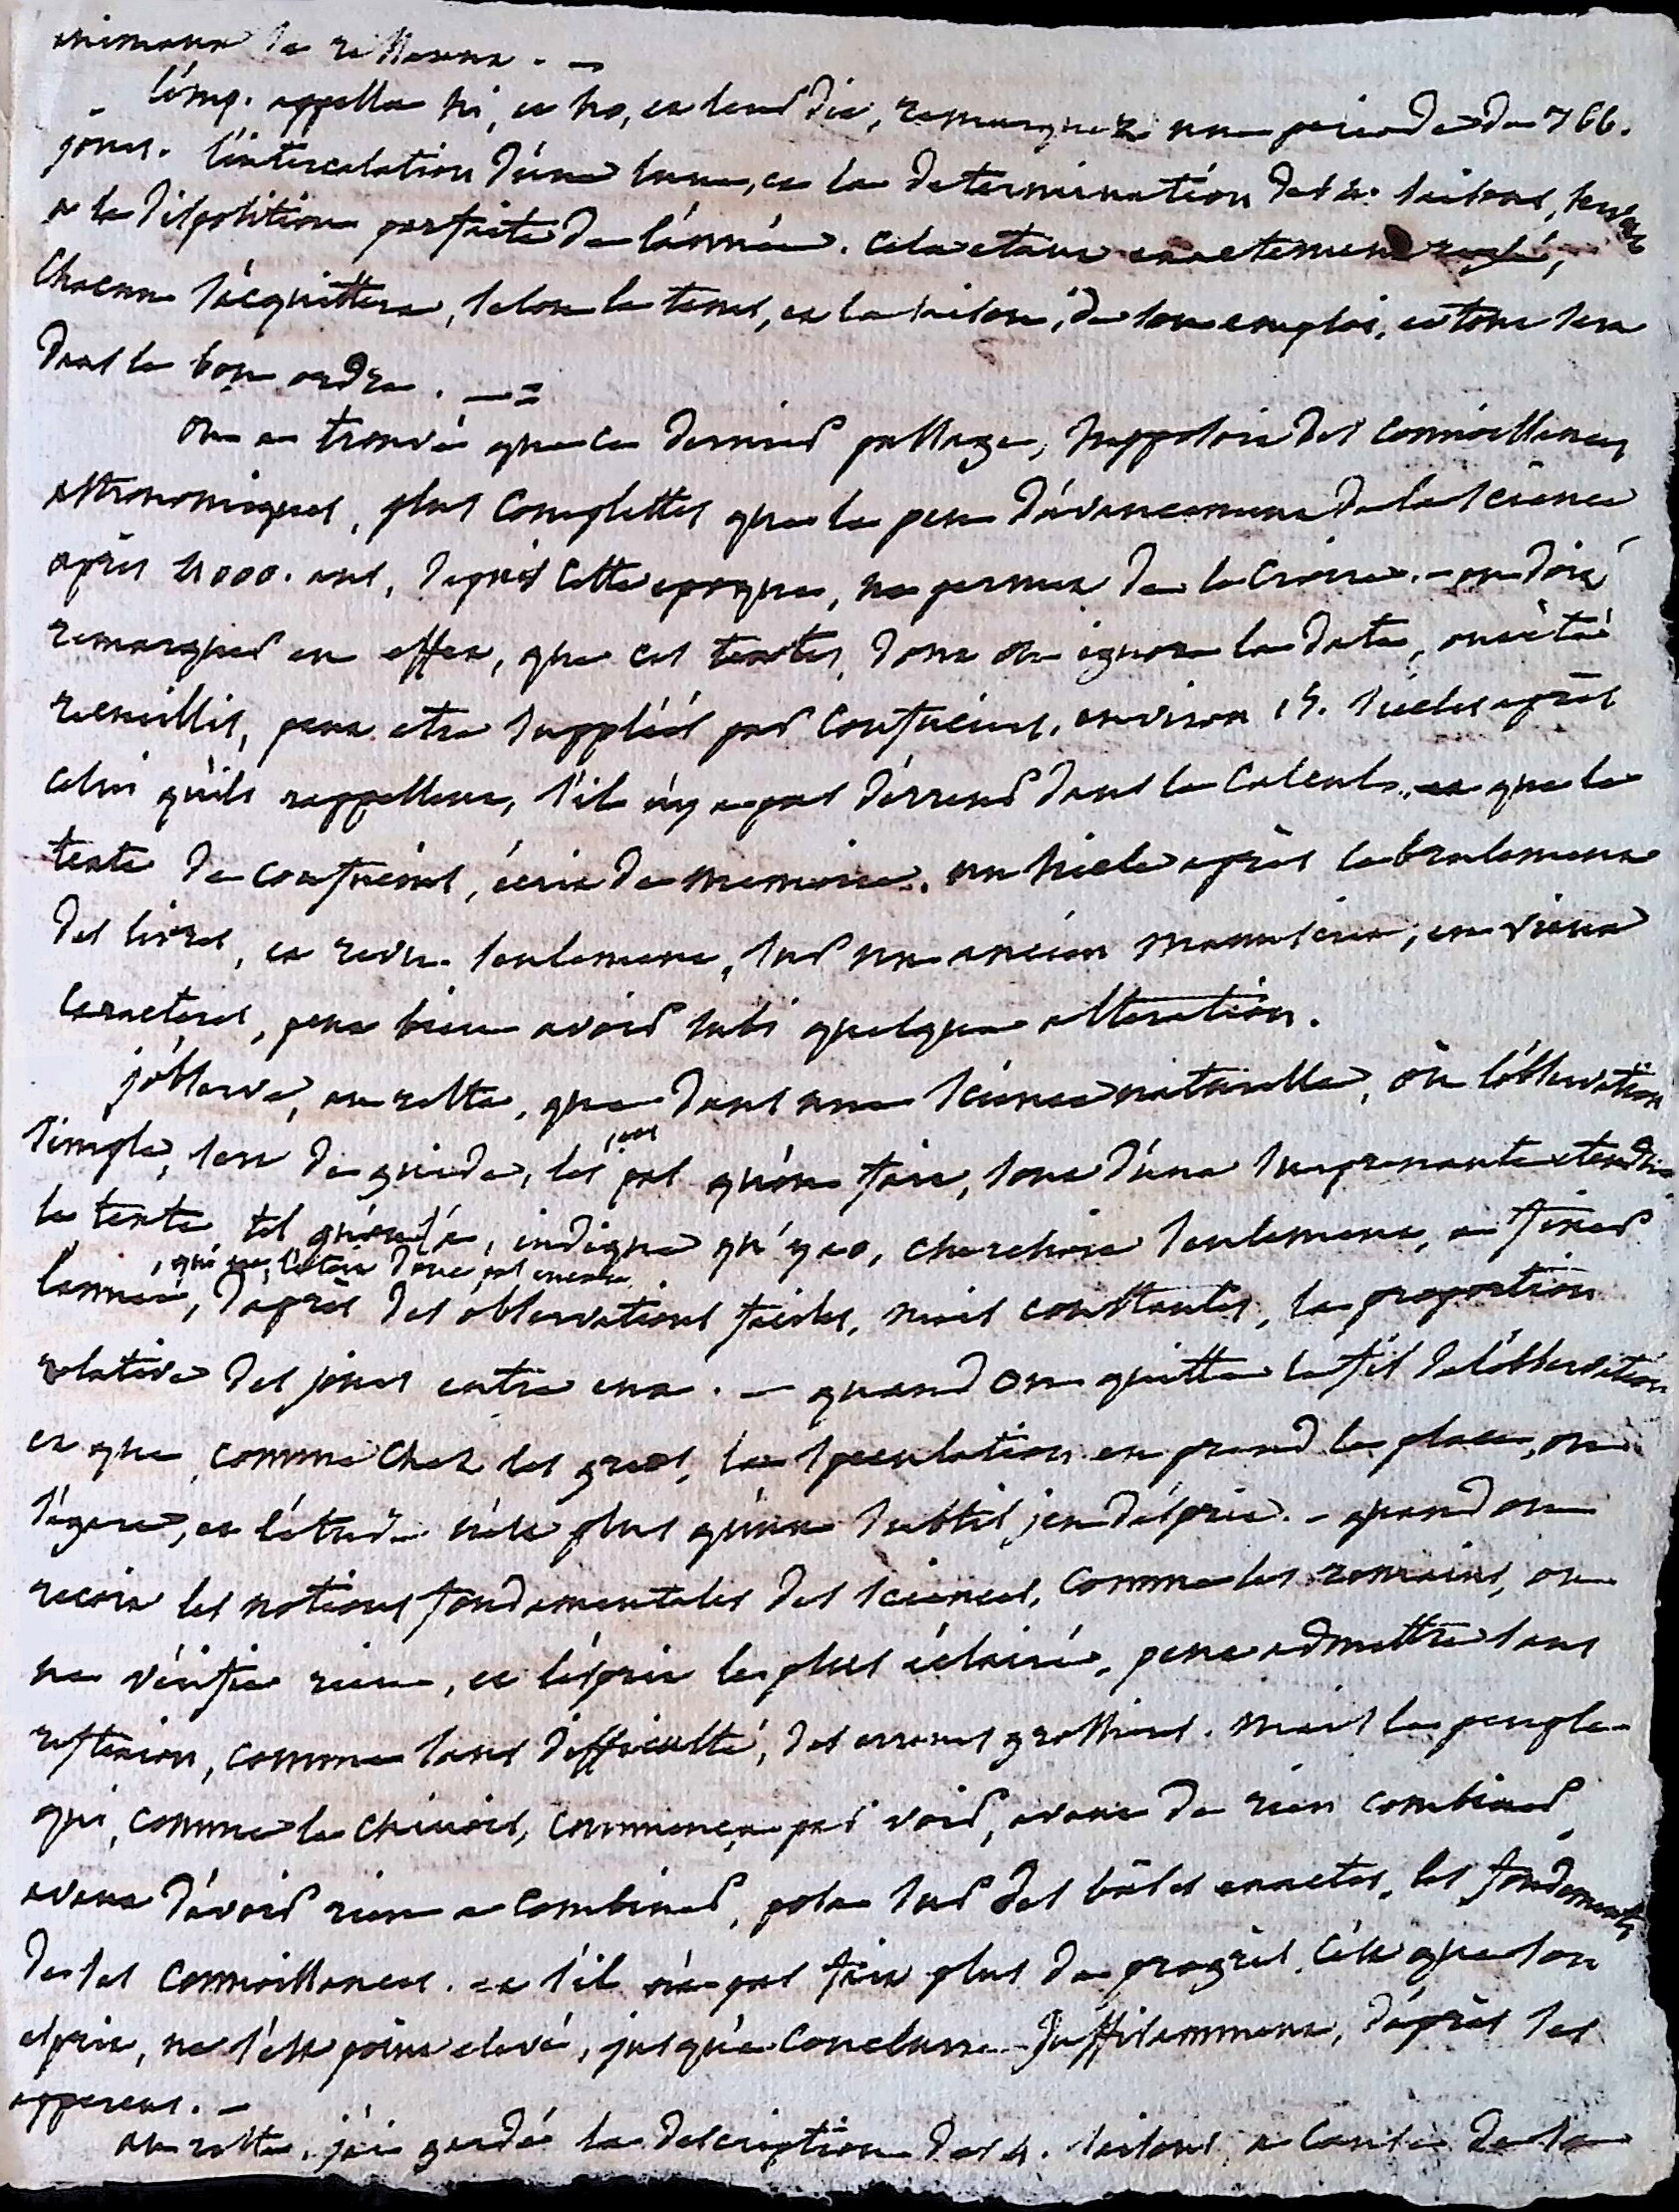 animaux se resserre. —
l'emp. appella hi, et ho, et leur dit, remarquez une periode de 366.
jours. l'intercalation d'une lune, et la determination des 4. saisons, servent
a la disposition parfaite de l'année. cela etant exactement reglé,
chacun s'acquittera, selon le tems, et la saison, de son emploi, et tout sera
dans le bon ordre. —=
on a trouvé que ce dernier passage, supposoit des connoissances
astronomiques, plus complettes que le peu d'avancement de la science
après 4000. ans, depuis cette epoque, ne permet de le croire. — on doit
remarquer en effet, que ces textes, dont on ignore la date, ont été
recueillis, peut etre suppléés par Confucius, environ 15. siècles après
celui qu'ils rappellent, s'il n'y a pas d'erreur dans le calcul. et que le
texte de Confucius, écrit de memoire, un siecle après le brulement
des livres, et revu seulement, sur un ancien manuscrit, en vieux
caracteres, peut bien avoir subi quelque alteration.
j'observe, au reste, que dans une science naturelle, où l'observation
simple, sert de guide, les pas qu'on fait, sont d'une surprenante etendue.
le texte, tel qu'on l'a, indique qu'yao, cherchoit seulement, a fixer
, qui ne l'étoit donc pas encore
l'année, d'après des observations faciles, mais constantes, la proportion
relative des jours entre eux. — quand on quitte le fil de l'observation
et que, comme chez les grecs, la speculation en prend la place, on
s'égare, et l'étude n'est plus qu'un subtil jeu d'esprit. — quand on
reçoit les notions fondamentales des sciences, comme les romains, on
ne vérifie rien, et l'esprit le plus éclairé, peut admettre sans
reflexion, comme sans difficulté, des erreurs grossieres. mais le peuple
qui, comme le chinois, commence par voir, avant de rien combiner,
avant d'avoir rien a combiner, pose sur des bases exactes, les fondements
de ses connoissances. et s'il n'a pas fait plus de progrès, c'est que son
esprit, ne s'est point elevé, jusqu'a conclure suffisamment, d'après ses
apperçus. —
au reste, j'ai gardé la description des 4. saisons, a cause de la